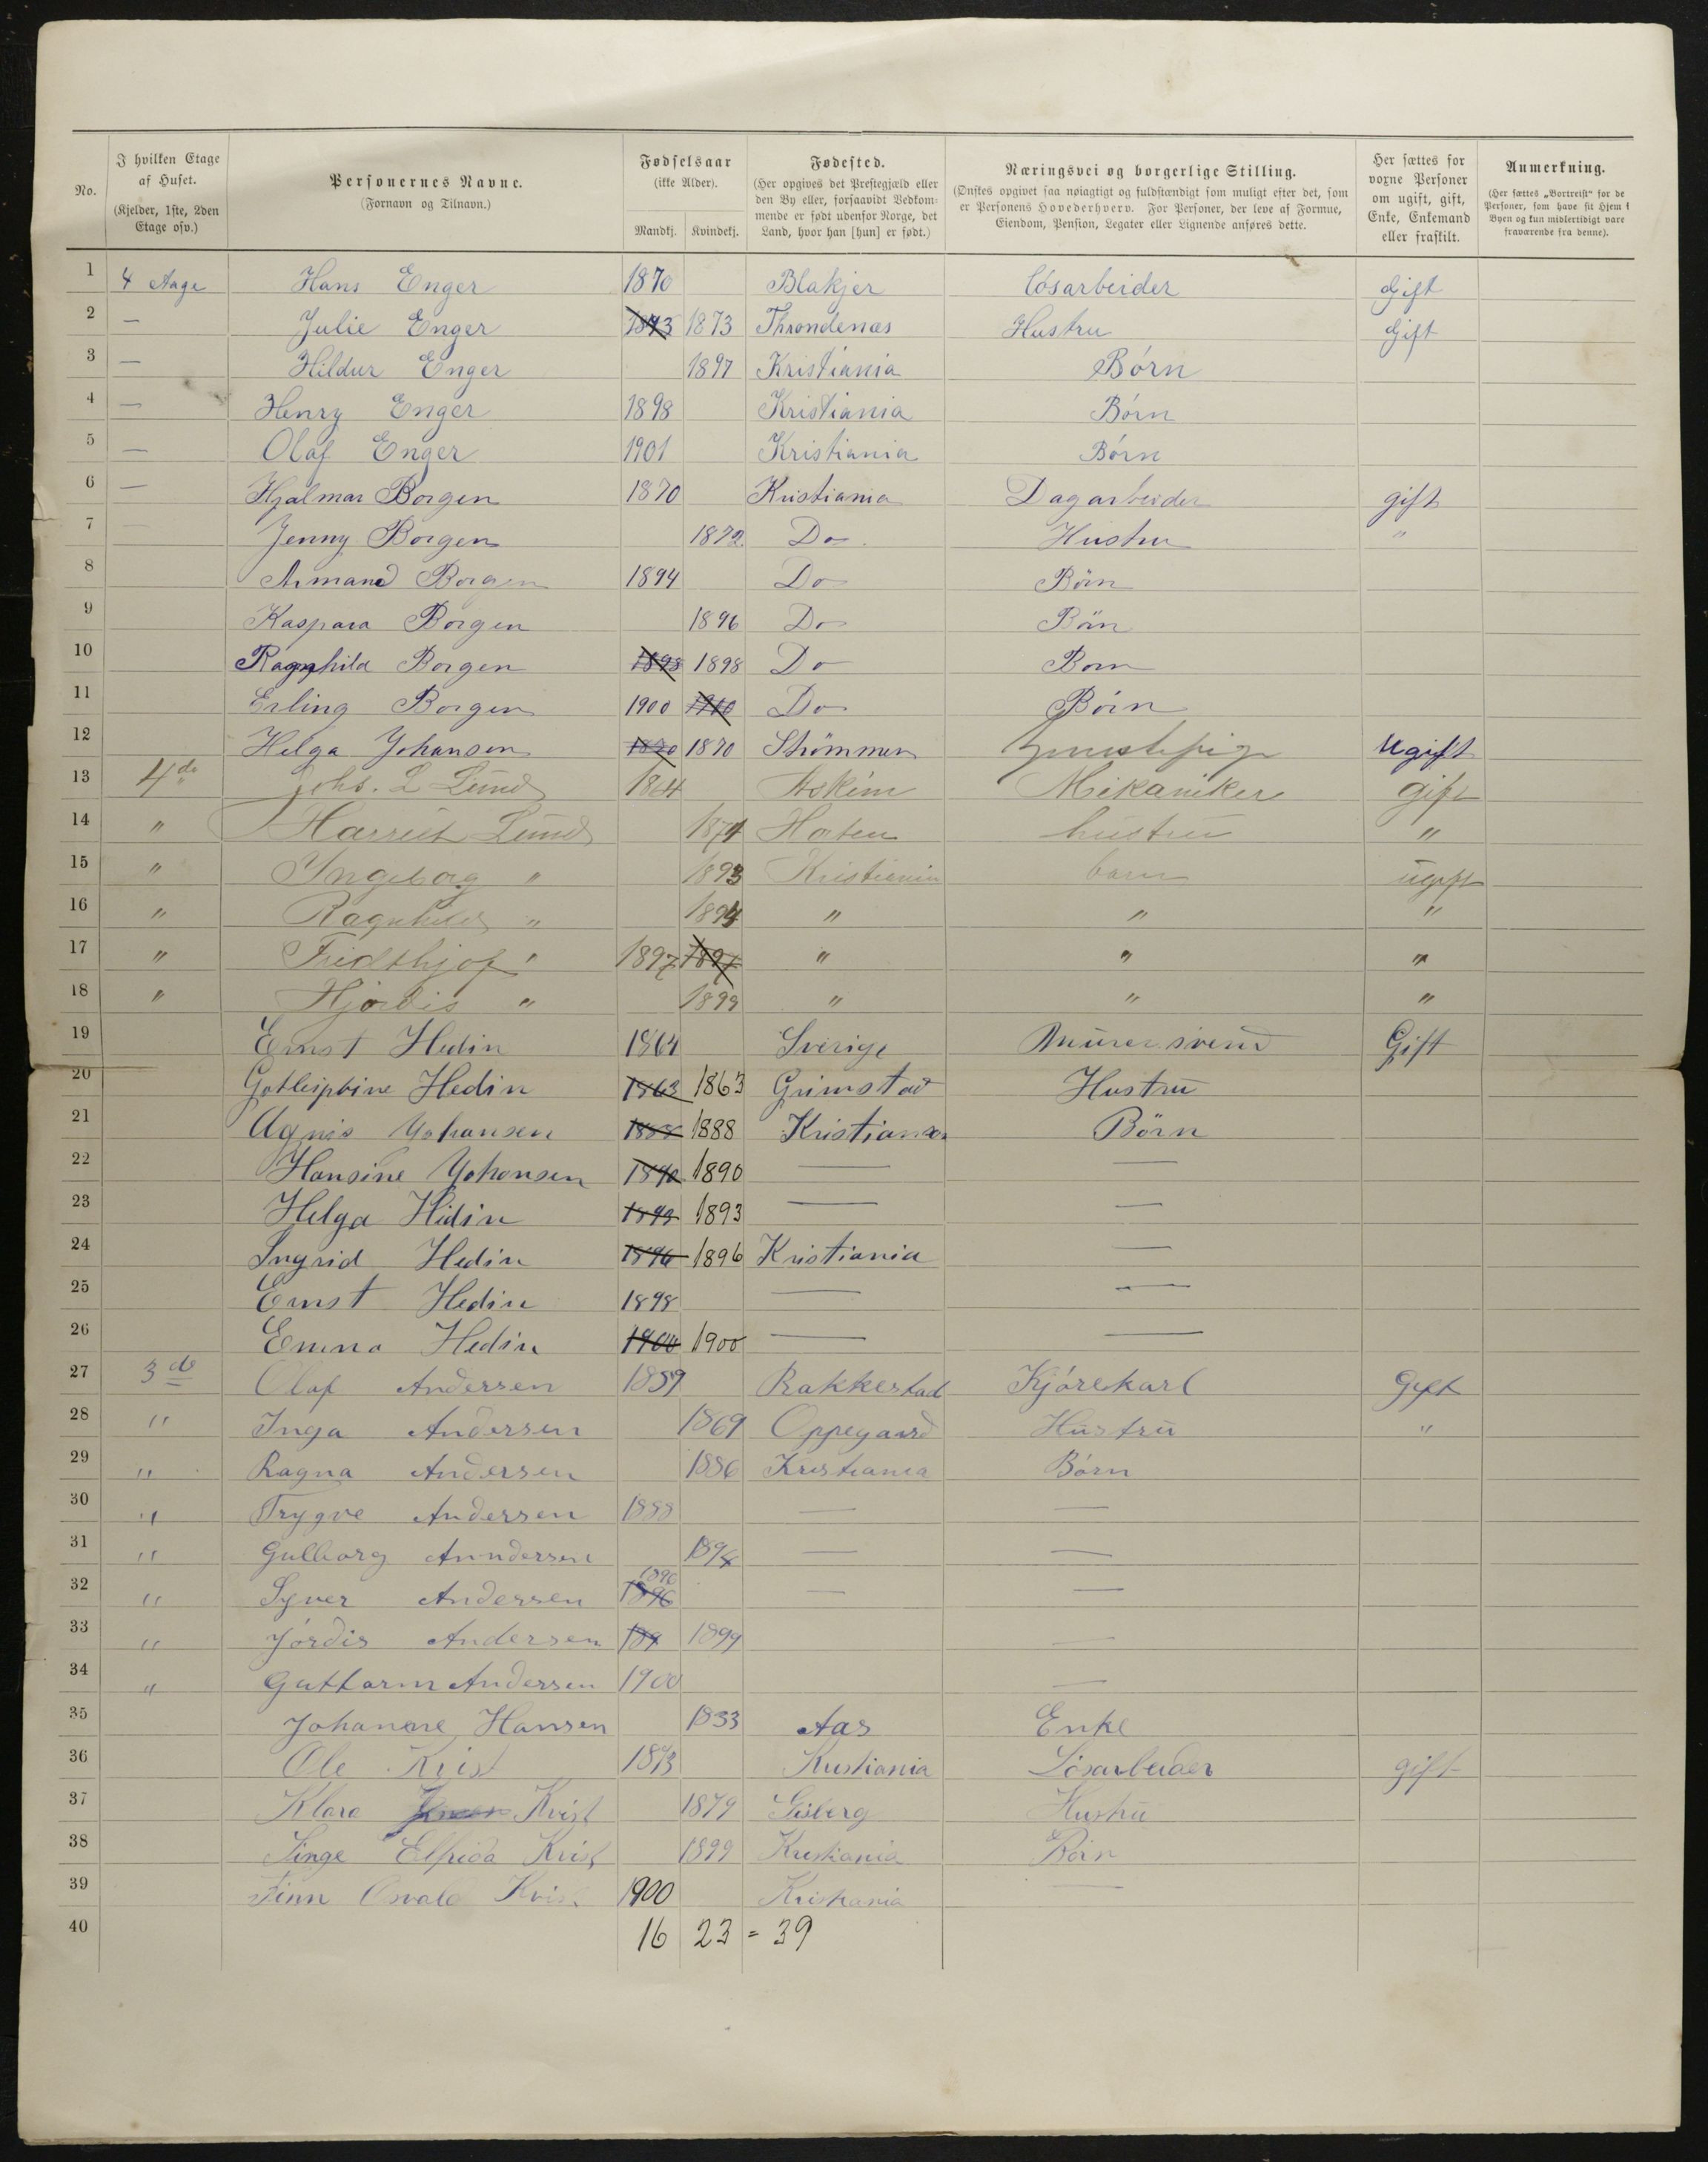 No.
I hvilken Etage af Huset. (Kjelder, 1ste, 2den Etage osv.)
Personernes Navne. (Fornavn og Tilnavn.)
Fødselsaar (ikke Alder). Mandkj. Kvindekj.
Fødested. (Her opgives det Prestegjæld eller den By eller, forsaavidt Vedkommende er født udenfor Norge, det Land, hvor han [hun] er født.)
Næringsvei og borgerlige Stilling. (Ønskes opgivet saa nøiagtigt og fuldstændigt som muligt efter det, som er Personens Hovederhverv. For Personer, der leve af Formue, Eiendom, Pension, Legater eller Lignende anføres dette.
Her sættes for voxne Personer om ugift, gift, Enke, Enkemand eller fraskilt.
Anmerkning. (Her sættes „Bortreist“ for de Personer, som have sit Hjem i Byen og kun midlertidigt vare fraværende fra denne).
1 4 Aage Hans Enger 1870 Blakjer Løsarbeider Gift
2 — Julie Enger 1873 1873 Throndenæs Hustru Gift
3 — Hildur Enger 1897 Kristiania Børn
4 — Henry Enger 1898 Kristiania Børn
5 — Olaf Enger 1901 Kristiania Børn
6 — Hjalmar Borgen 1870 Kristiania Dagarbeider gift
7 — Jenny Borgen 1872 Do Hustru "
8 Armand Borgen 1894 Do Børn
9 Kaspara Borgen 1896 Do Børn
10 Ragnhild Borgen 1898 1898 Do Born
11 Erling Borgen 1900 1900 Do Børn
12 Helga Johansen 1870 1870 Strømmen Ugift
13 4de Johs. L Lund 1864 Askim Mekaniker gift
14 " Harriet Lund 1874 hustru "
15 " Ingeborg " 1893 Kristiania barn ugift
16 " Ragnhild " 1894 " " "
17 " Fridthjof " 1897 1897 " " "
18 " Hjørdis " 1899 " " "
19 Ernst Hedin 1864 Sverige Murersvend Gift
20 Hedin 1863 1863 Grimstad Hustru
21 Agnis Yohansen 1888 1888 Børn
22 Hansine Yohansen 1890 1890 — —
23 Helga Hedin 1893 1893 — —
24 Ingrid Hedin 1896 1896 Kristiania —
25 Ernst Hedin 1898 — —
26 Emma Hedin 1900 1900 — —
27 3de Olaf Andersen 1859 Rakkestad Kjørekarl Gift
28 " Inga Andersen 1869 Oppegaard Hustru "
29 " Ragna Andersen 1886 Kristiania Børn
30 " Trygve Andersen 1888 — —
31 " Gulborg Anndersen — —
32 " Syver Andersen 1896 1896 — —
33 " Jórdis Andersen 189 1899 —
34 " Guttorm Andersen 1900 —
35 Johanne Hansen 1833 Aas Enke
36 Ole Kvist 1873 Kristiania Løsarbeider gift
37 Klara Kvist 1879 Hustru
38 Signe Elfrida Kvist 1899 Kristiania Børn
39 Finn Osvald Kvist 1900 Kristiania —
40 16 23 = 39